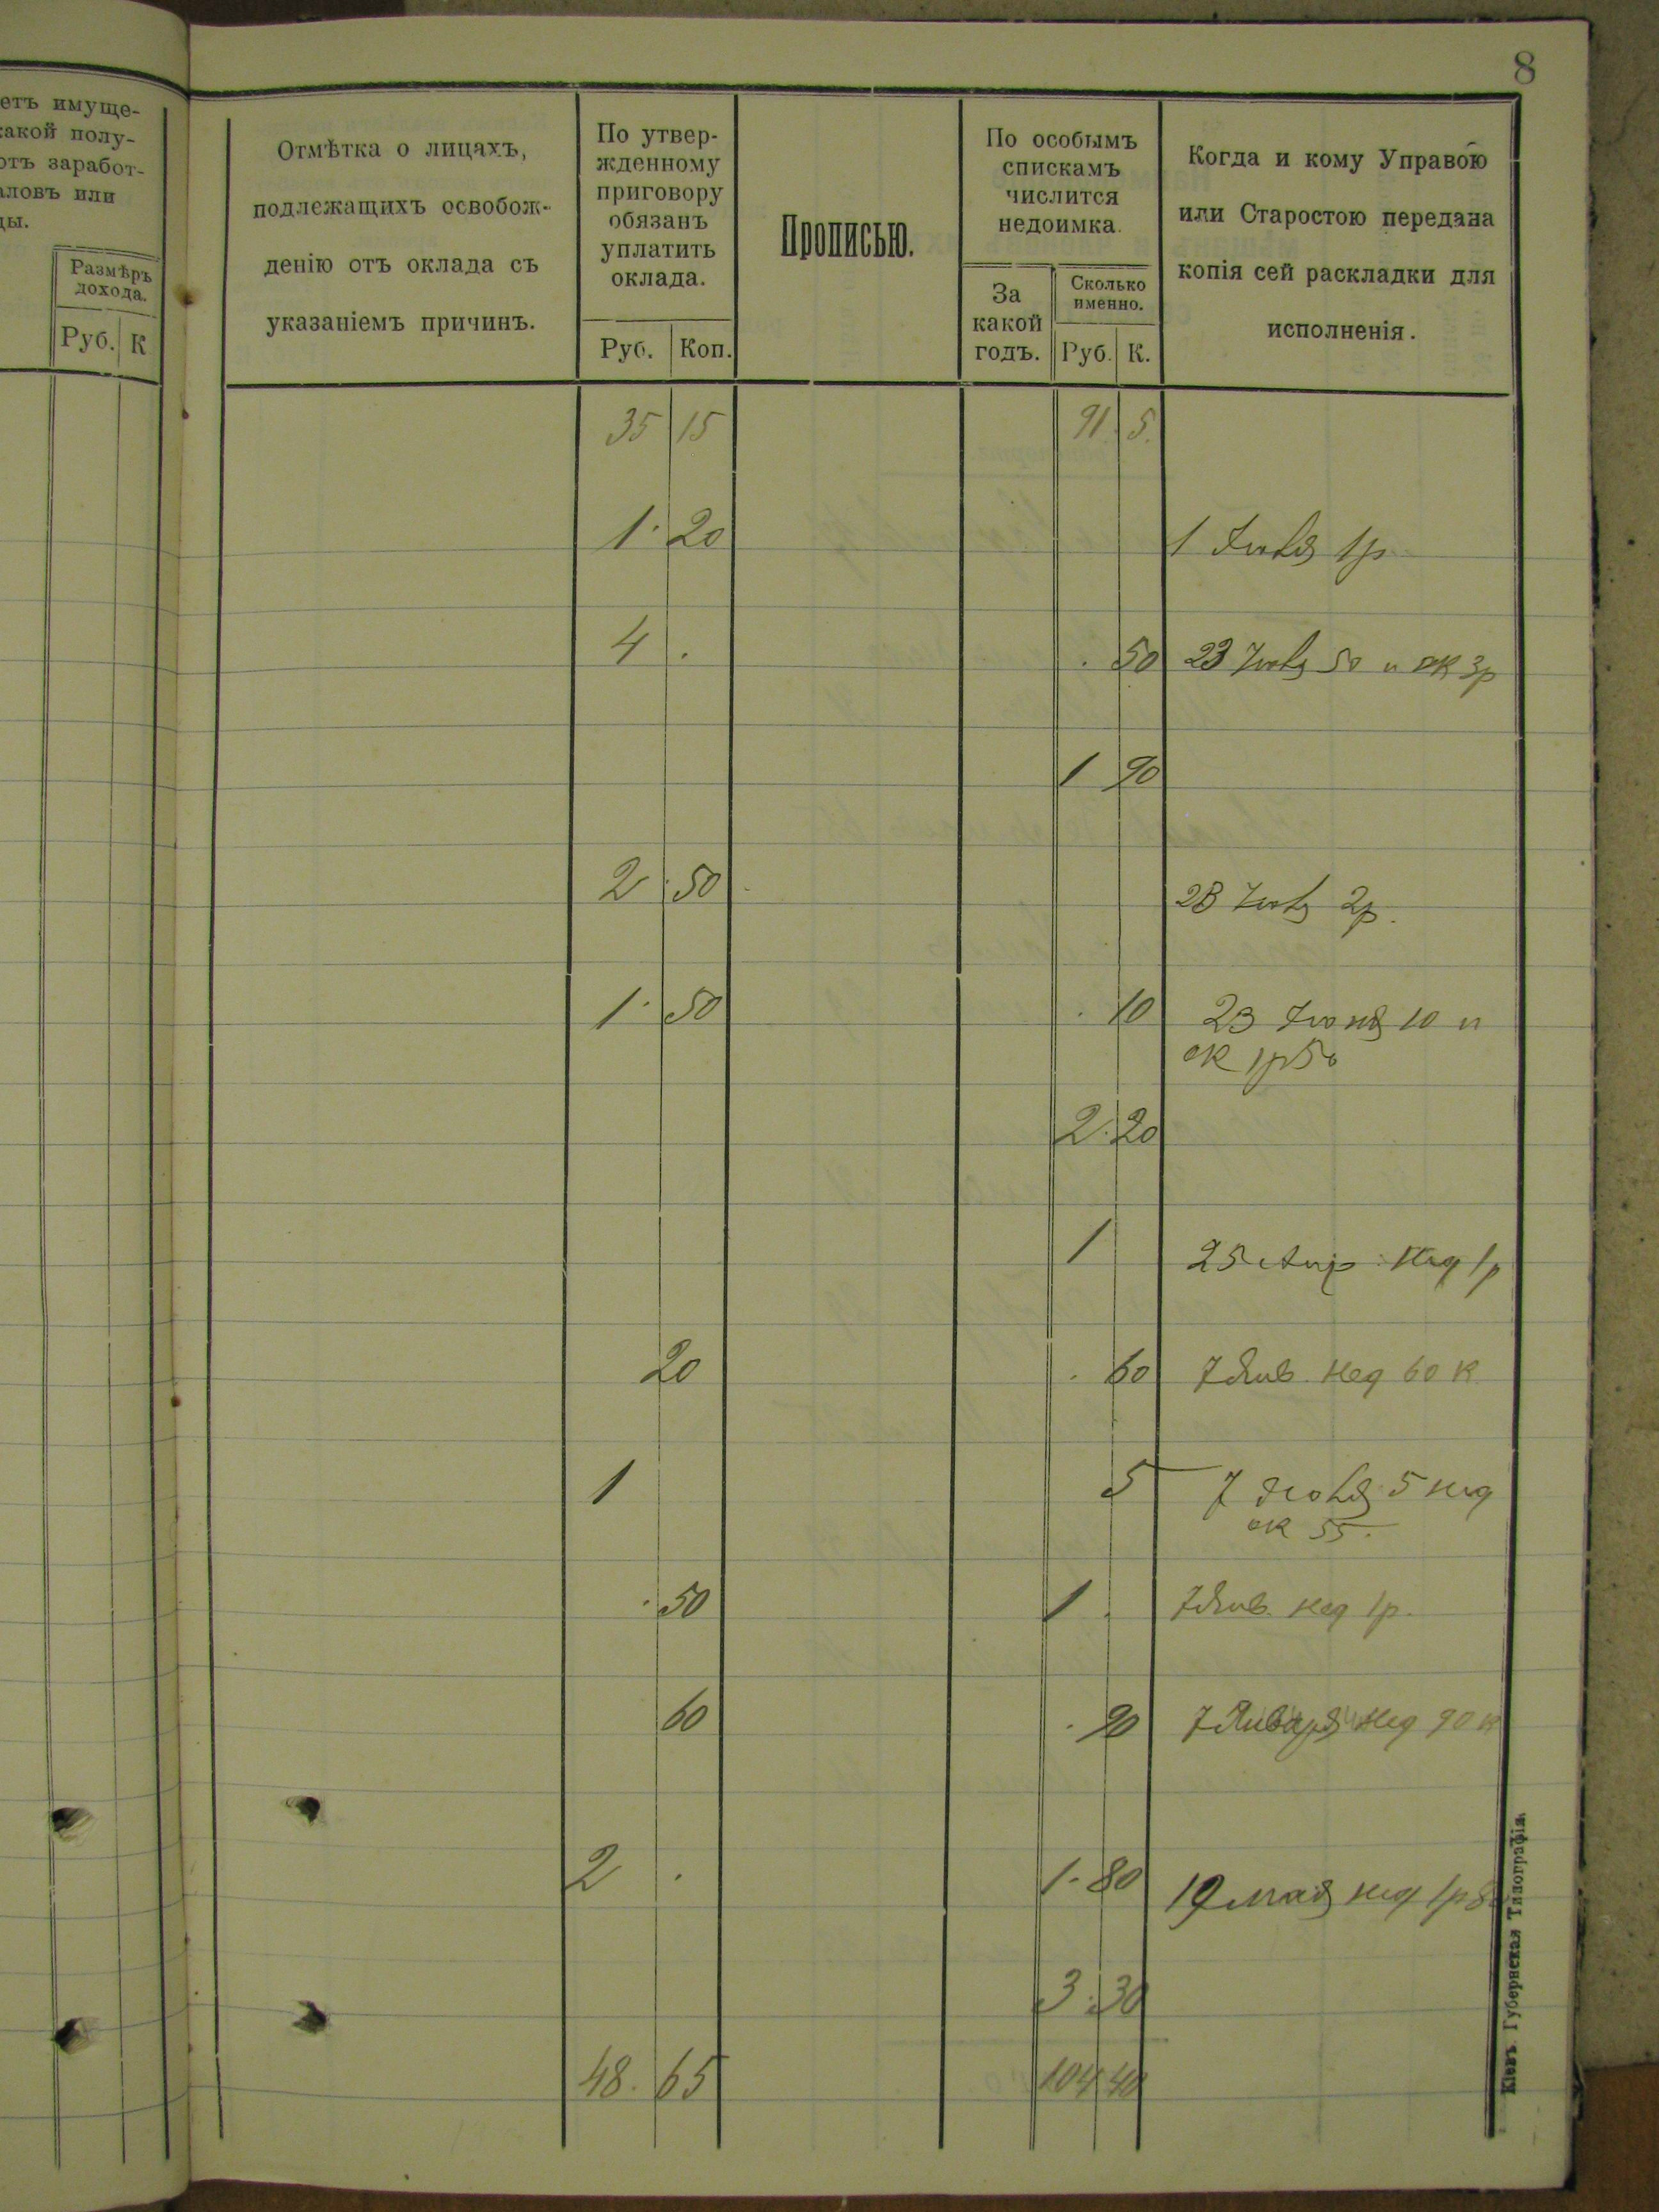 8
етъ имуще-
какой полу-
отъ заработ-
аловъ или
ды.
Размѣръ
дохода.
Руб. К
Отмѣтка о лицахъ,
подлежащихъ освобож-
денію отъ оклада съ
указаніемъ причинъ.
По утвер-
жденному
приговору
обязанъ
уплатить
оклада.
Руб. Коп.
Прописью.
По особымъ
спискамъ
числится
недоимка.
За
какой
годъ.
Сколько
именно.
Руб. К.
Когда и кому Управою
или Старостою передана
копія сей раскладки для
исполненія.
35 15 91. 5.
1. 20 1 Іюля 1р
4 . . 50 23 Іюля 50 и ок 3р
1 90
2 . 50 23 Іюля 2р.
1. 50 . 10 23 Іюня 10 и
ок 1р50
2. 20
1 25 Апр нед 1р
20 . 60 7 Янв нед 60 к
1 5 7 Іюля 5 нед
ок 55.
. 50 1 . 7 Янв. нед 1р.
60 . 90 7 Января нед 90 к
2 . 1. 80 19 мая нед 1р8
3. 30
48. 65 104 40
Кіевъ. Губернская Типографія.